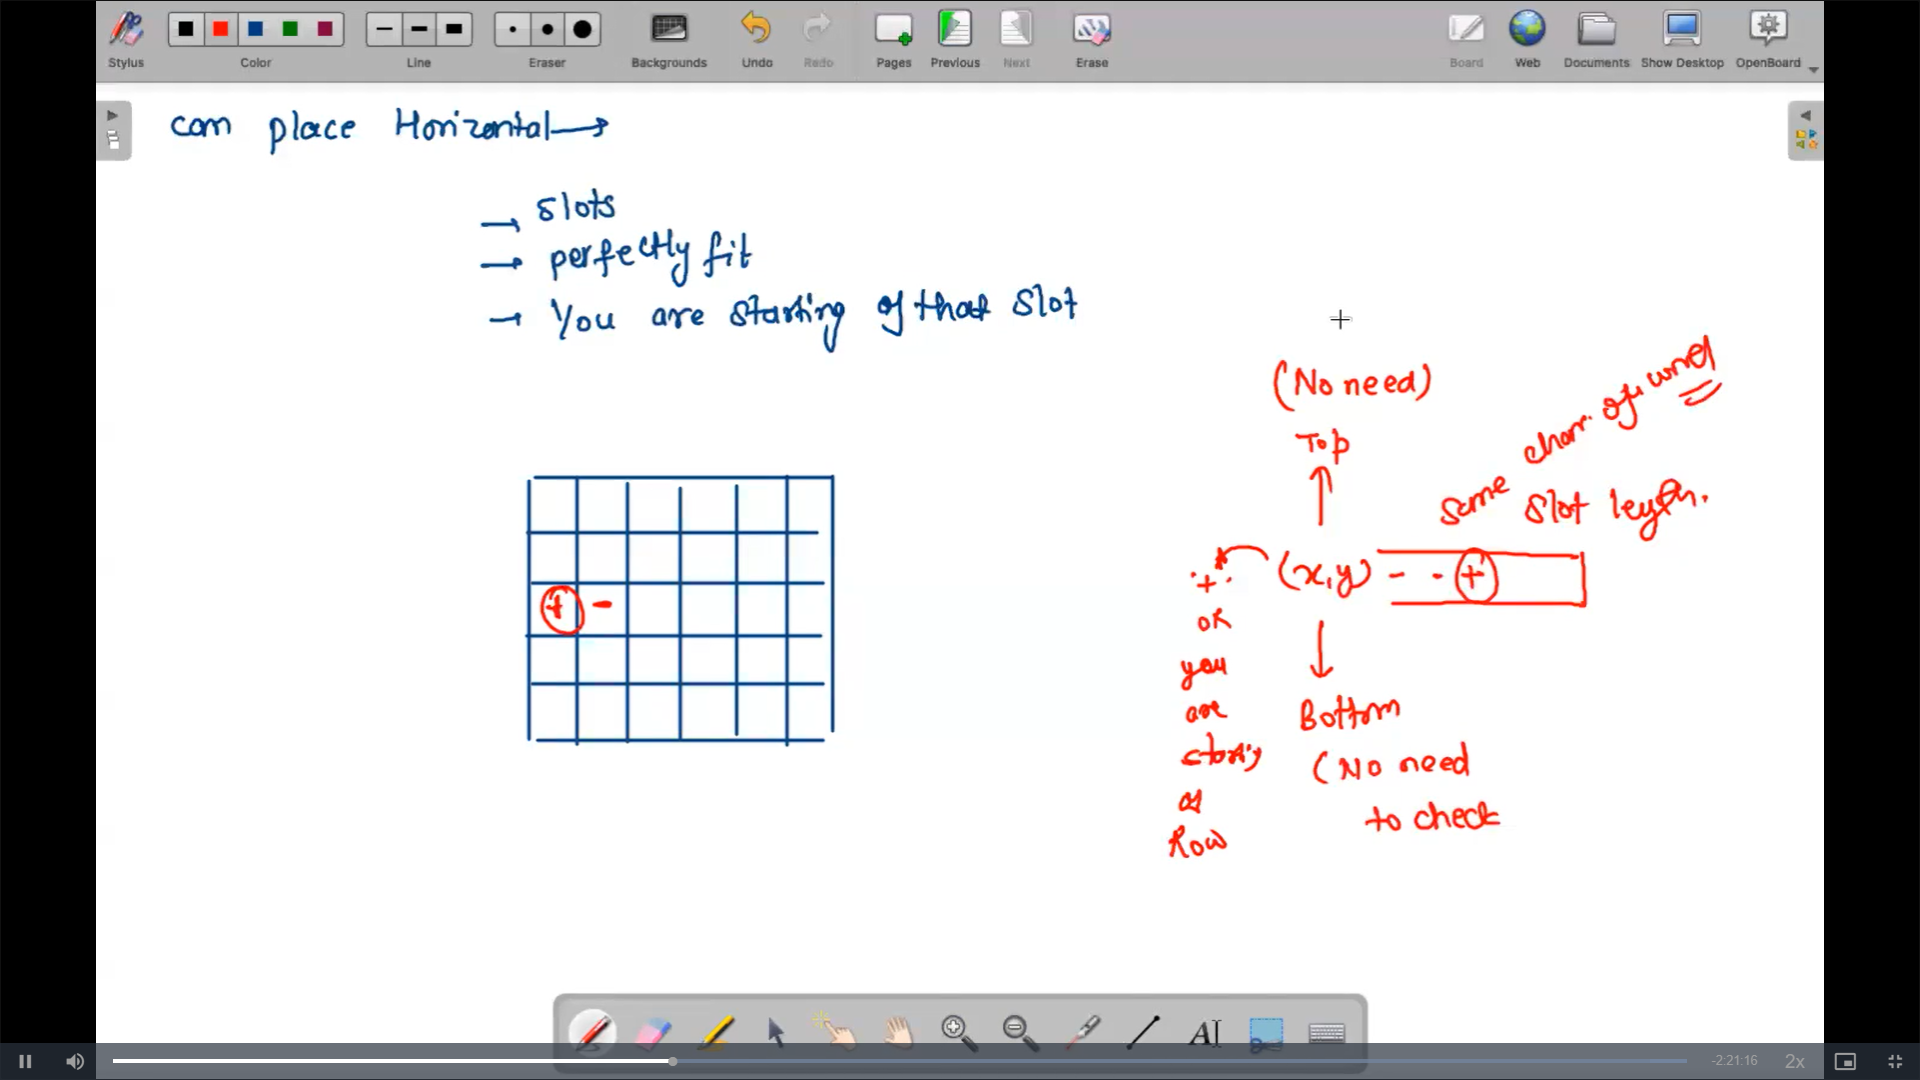 Stylus
Color
Line
Eraser
Backgrounds
Undo
Redo
Pages
Previous
Next
Erase
Board
Web
Documents
Show Desktop
OpenBoard
can place Horizontal →
→ slots
→ perfectly fit
→ You are starting of that slot
(No need)
Top
same char. of word
slot length.
+ or you are of Row
(x,y) - - +
Bottom
(No need
to check
+ -
-2:21:16
2x